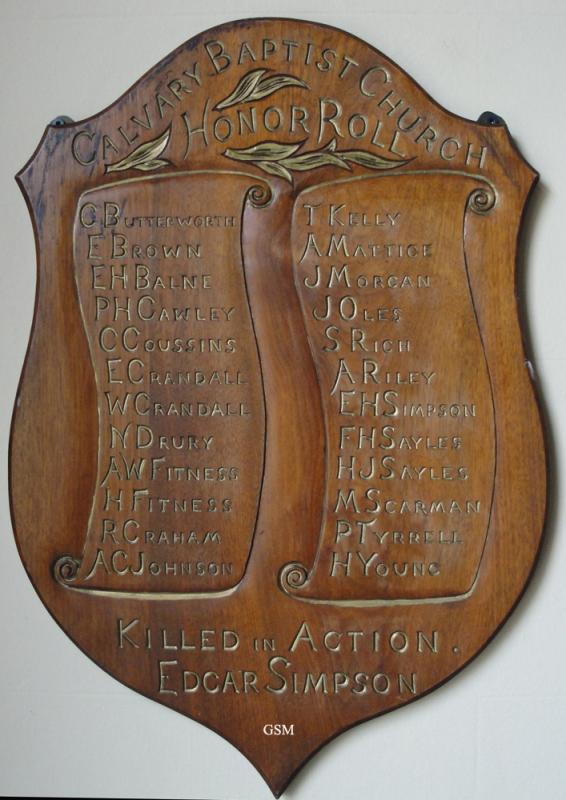 CALVARY BAPTIST CHURCH
HONOR ROLL
C BUTTERWORTH
E BROWN
E H BALNE
P H CAWLEY
C COUSSINS
E CRANDALL
W CRANDALL
N DRURY
A W FITNESS
H FITNESS
R GRAHAM
A C JOHNSON
T KELLY
A MATTICE
J MORGAN
J OLES
S RICH
A RILEY
E H SIMPSON
F H SAYLES
H J SAYLES
M SCARMAN
P TYRRELL
H YOUNG
KILLED IN ACTION.
EDGAR SIMPSON
GSM